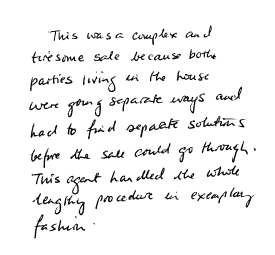 This was a complex and
tiresome sale because both
parties living in the house
were going separate ways and
had to find separate solutions
before the sale could go through.
This agent handled the whole
lengthy procedure in exemplary
fashion.